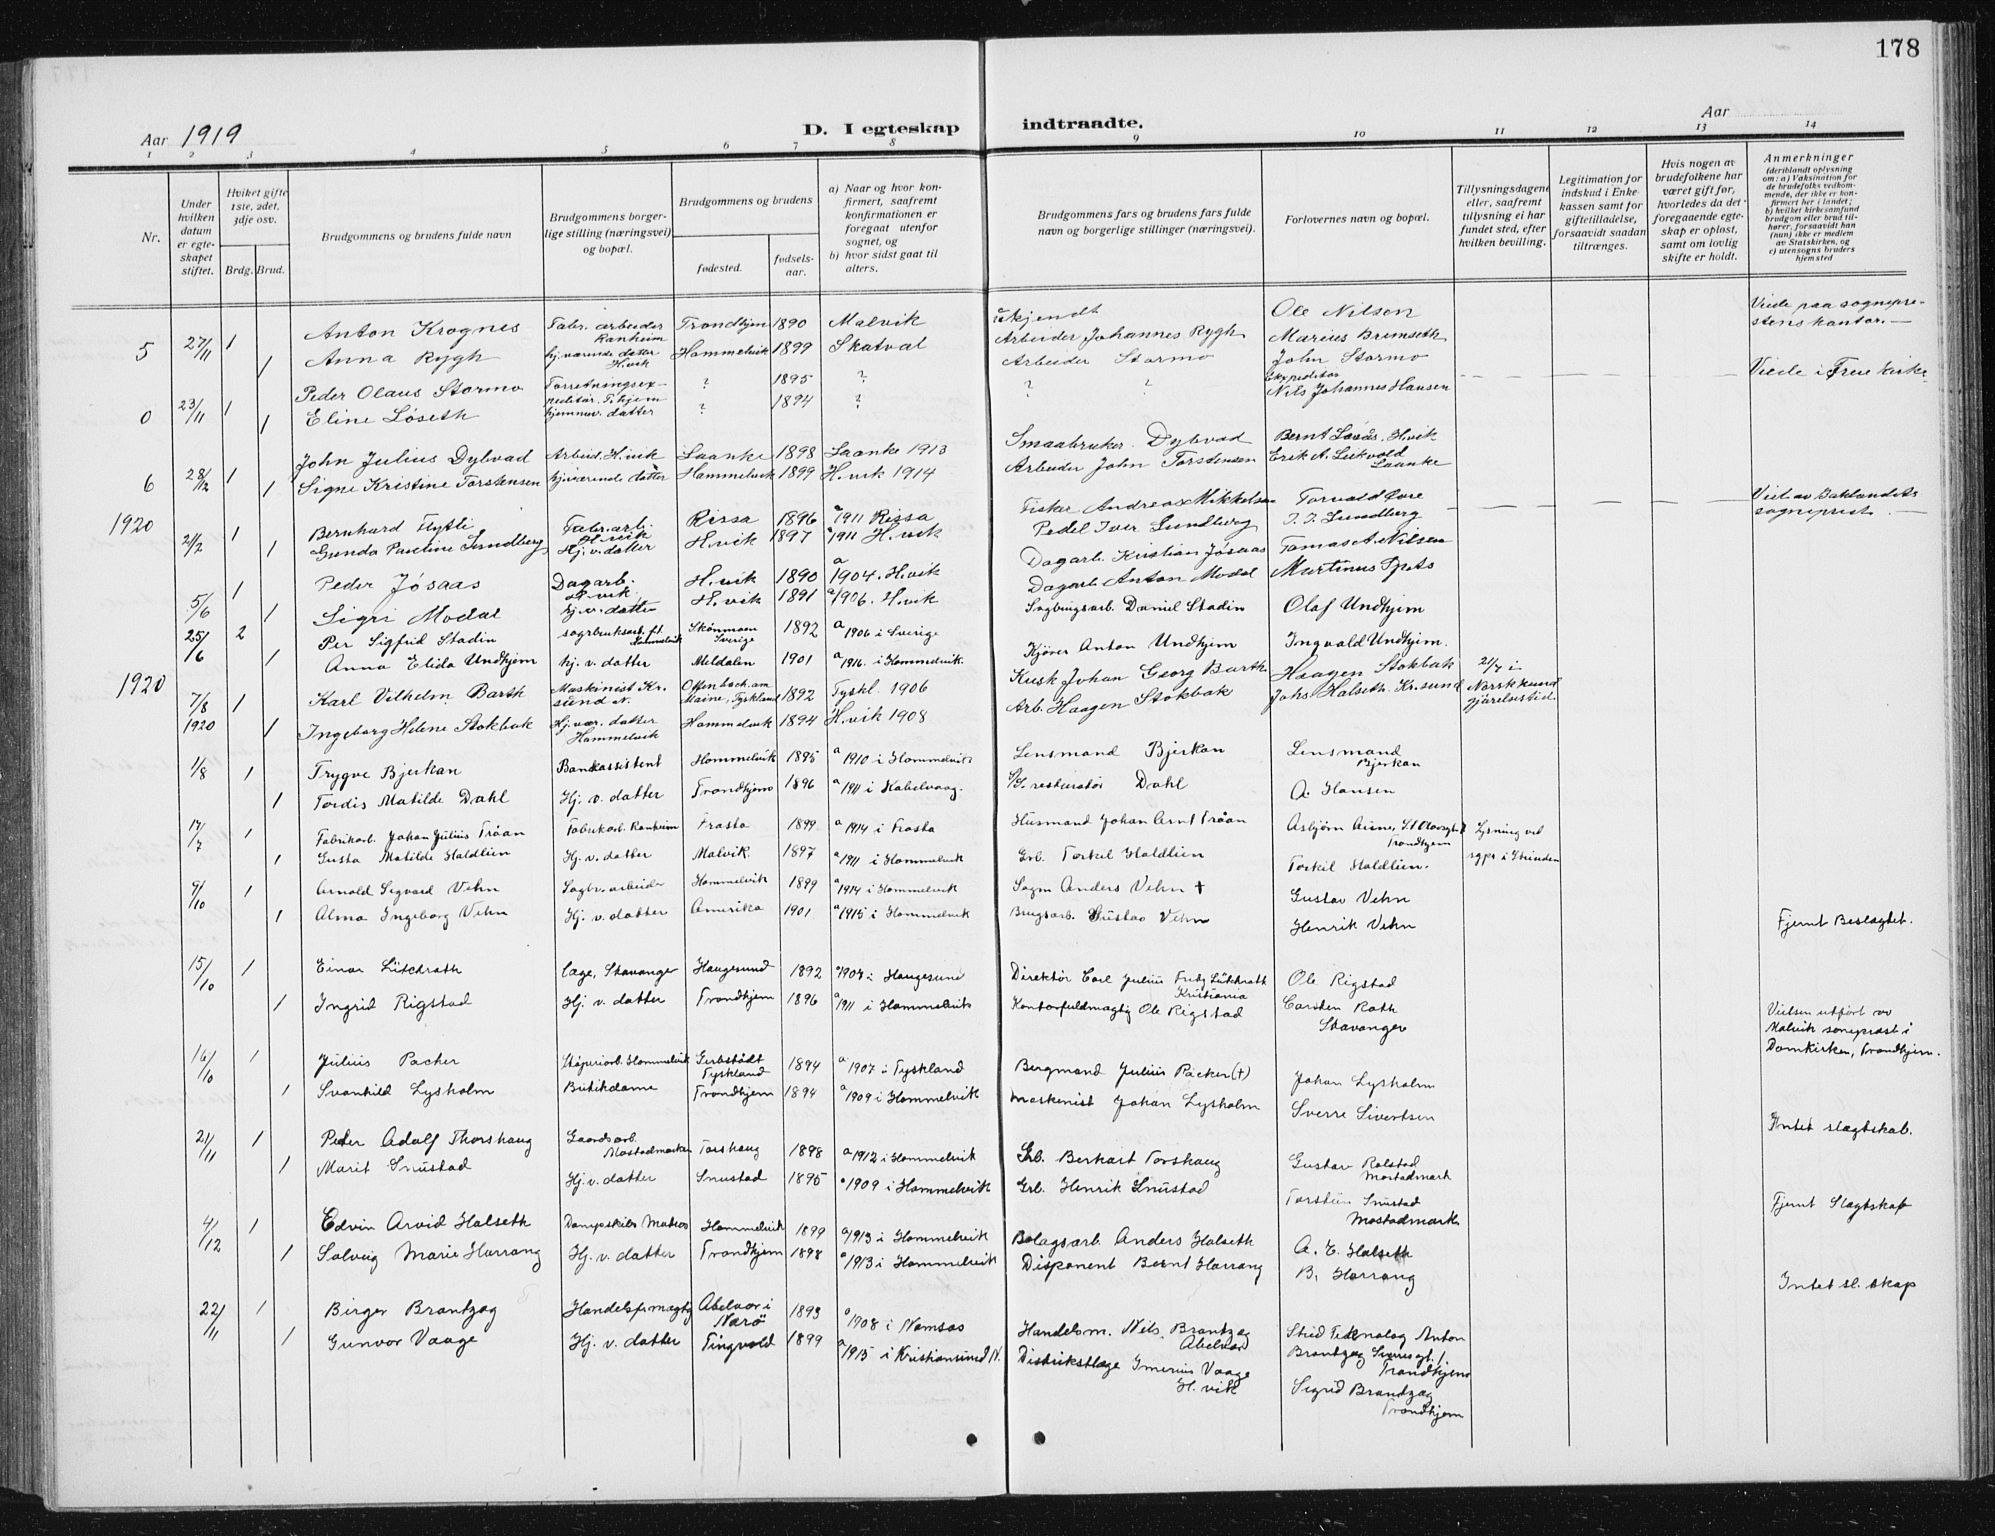 178
Aar 1919
D. I egteskap indtraadte.
Aar
1 2 3 4 5 6 7 8 9 10 11 12 13 14
Nr.
Under hvilken datum er egteskapet stiftet.
Hvilket gifte 1ste, 2det, 3dje osv.
Brdg. Brud.
Brudgommens og brudens fulde navn
Brudgommens borgerlige stilling (næringsvei) og bopæl.
Brudgommens og brudens
fødested. fødselsaar.
a) Naar og hvor konfirmert, saafremt konfirmationen er foregaat utenfor sognet, og
b) hvor sidst gaat til alters.
Brudgommens fars og brudens fars fulde navn og borgerlige stillinger (næringsvei).
Forlovernes navn og bopæl.
Tillysningsdagene eller, saafremt tillysning ei har fundet sted, efter hvilken bevilling.
Legitimation for indskud i Enkekassen samt for giftetilladelse, forsaavidt saadan tiltrænges.
Hvis nogen av brudefolkene har været gift før, hvorledes da det foregaaende egteskap er opløst, samt om lovlig skifte er holdt.
Anmerkninger (deriblandt oplysning om: a) Vaksination for de brudefolks vedkommende, der ikke er konfirmert her i landet; b) hvilket kirkesamfund brudgom eller brud tilhører, forsaavidt han (hun) ikke er medlem av Statskirken, og c) utensogns bruders hjemsted
5 27/11 1 Anton Krognes Fabr. arbeider Ranheim Trondhjem 1890 Malvik ukjendt Ole Nilsen Viede paa sogneprestens kontor.
1 Anna Rygh hj.værende datter H.vik Hommelvik 1899 Skatval Arbeider Johannes Rygh Marius Bremseth
0 23/11 1 Peder Olaus Stormo Forretningsexpeditør. T.hjem ? 1895 ? Arbeider Stormo John Stormo Viede i Freie kirke
1 Eline Løseth hjemmev. datter ? 1894 ? ? ? Expeditør Nils Johannes Hansen
6 28/12 1 John Julius Dybvad Arbeid. H.vik Laanke 1898 Laanke 1913 Smaabruker Dybvad Bernt H.vik
1 Signe Kristine Torstensen hjv.ærende datter Hommelvik 1899 H.vik 1914 Arbeider John Torstensen Erik A. Leikvold Laanke
1920 2/2 1 Bernhard Flytli Fabr.arb. H.vik Rissa 1896 a 1911 Rissa Fisker Andreas Mikkelsen Torvald Viet av Baklandets sogneprest.
1 Gunda Pauline Lundberg Hj.v.datter H.vik 1897 a 1911 H.vik Pedel Iver Lundberg J. J. Lundberg
5/6 1 Peder Jøsaas Dagarb. H.vik H.vik 1890 a 1904. H.vik Dagarb. Kristian Jøsaas Tomas A. Nilsen
1 Sigri Modal hj.v.datter H.vik 1891 a 1906. H.vik Dagarb. Anton Modal Martinus
25/6 2 Per Sigfrid Stadin sagbruksarb. f.t. Hommelvik Skönmoen Sverige 1892 a 1906 i Sverige Sagbrugsarb. Daniel Stadin Olaf Undhjem
1 Anna Elida Undhjem hj. v. datter Meldalen 1901 a 1916. i Hommelvik. Kjører Anton Undhjem Ingvald Undhjem.
1920 7/8 1920 1 Karl Vilhelm Barth Maskinist Kr.sund N. Offenbach am Maine, Tyskland 1892 Tyskl. 1906 Kusk Johan Georg Barth Haagen Stokbak 21/7 i Norsk kundgjørelsestid.
1 Ingeborg Helene Stokbak Hj. vær. datter Hommelvik Hommelvik 1894 H.vik 1908 Arb. Haagen Stokbak Johs Halseth. Kr.sund
1/8 1 Trygve Bjerkan Bankassistent Hommelvik 1895 a 1910 i Hommelvik Lensmand Bjerkan Lensmand Bjerkan
1 Tordis Matilde Dahl Hj. v. datter Trondhjem 1896 a 1911 i Kabelvaag. D/S. restauratør Dahl A. Hansen
17/7 1 Fabrikarb. Johan Julius Tråan Fabrikarb. Ranheim Frosta 1899 a 1914 i Frosta Husmand Johan Arnt Tråan Asbjørn Aune, Trondhjem Lysning ved sgpr i Strinden
1 Gusta Matilde Haldlien Hj. v. datter Malvik. 1897 a 1911 i Hommelvik Grb. Torkil Haldlien Torkil Haldlien.
9/10 1 Arnold Sigvard Vehn Sagbr. arbeider Hommelvik 1899 a 1914 i Hommelvik Sagm Anders Vehn † Gustav Vehn
1 Alma Ingeborg Vehn Hj. v. datter Amerika 1901 a 1915 i Hommelvik Brugsarb. Gustav Vehn Henrik Vehn Fjernt Beslagtet.
15/10 1 Einar Lütchrath læge, Stavanger Haugesund 1892 a 1907 i Haugesund Direktör Carl Julius Fredz Lütchrath Kristiania Ole Rigstad
1 Ingrid Rigstad Hj. v. datter Trondhjem 1896 a 1911 i Hommelvik Kontorfuldmægtig Ole Rigstad Carsten Rath Stavanger Vielsen utført av Malvik soneprest i Domkirken, Trondhjem.
16/10 1 Julius Pacher Støperiarb. Hommelvik Gerbstådt Tyskland 1894 a 1907 i Tyskland Bergmand Julius Packer (†) Johan Lysholm
1 Svanhild Lysholm Butikdame Trondhjem 1894 a 1909 i Hommelvik Maskenist Johan Lysholm Sverre Sivertsen Intet slægtskab.
21/11 1 Peder Adolf Thorshaug Gaardsarb. Mostadmarken Torshaug 1898 a 1912 i Hommelvik Grb. Berhart Torshaug Gustav Rolstad Mostadmark
1 Marit Snustad Hj. v. datter Snustad 1895 a 1909 i Hommelvik Grb. Henrik Snustad Torstein Snustad Mostadmark Fjernt Slægtskap
4/12 1 Edvin Arvid Halseth Dampskibs Matros Hommelvik 1899 a 1913 i Hommelvik Bolagsarb. Anders Halseth A. E. Halseth
1 Solveig Marie Harrang Hj. v. datter Trondhjem 1898 a 1913 i Hommelvik Disponent Bernt Harrang B. Harrang Intet sl. skap
22/11 1 Birger Brantzæg Handelsfmægtig Abelvær i Nærö 1893 a 1908 i Namsos Handelsm. Nils Brantzæg Abelvær Stud Teknolog Anton Brantzæg Trondhjem
1 Gunvor Vaage Hj. v. datter Tingvold 1899 a 1915 i Kristiansund N. Distriktslæge Imerius Vaage H.vik Sigrid Brantzæg Trondhjem